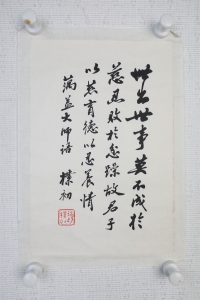 世出世事莫不成於
慈忍敗於忿躁故君子
以慈育德以忍養情
蕅益大师語 樸初